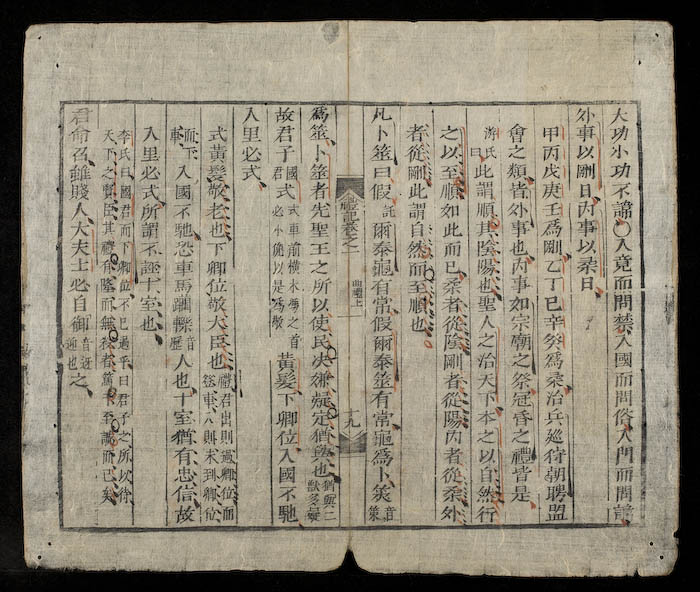 大功小功不諱○入竟而問禁入國而問俗入門而問諱
外事以剛日內事以柔日
甲丙戊庚壬爲剛乙丁己辛癸爲柔治兵巡狩朝聘盟
會之類皆外事也內事如宗廟之祭冠昏之禮皆是
游氏曰此謂順其陰陽也聖人之治天下本之以自然行
之以至順如此而已柔者從陰剛者從陽內者從柔外
者從剛此謂自然而至順也
凡卜筮曰假託爾泰龜有常假爾泰筮有常龜爲卜筴音策
禮記卷之一 曲禮上 十九
爲筮卜筮者先聖王之所以使民决嫌疑定猶與也猶與二獸多疑
故君子國君式式車前橫木馮之首必小俛以是爲敬黃髮下卿位入國不馳
入里必式
式黃髮敬老也下卿位敬大臣也禮君出則過卿位而登車入則未到卿位
而下車入國不馳恐車馬躙轢音歷人也十室猶有忠信故
入里必式所謂不誣十室也
李氏曰國君而下卿位不已過乎曰君子之所以待
天下之賢臣其禮有隆而無殺者篤於至誠而已矣
君命召雖賤人大夫士必自御音迓迎也之